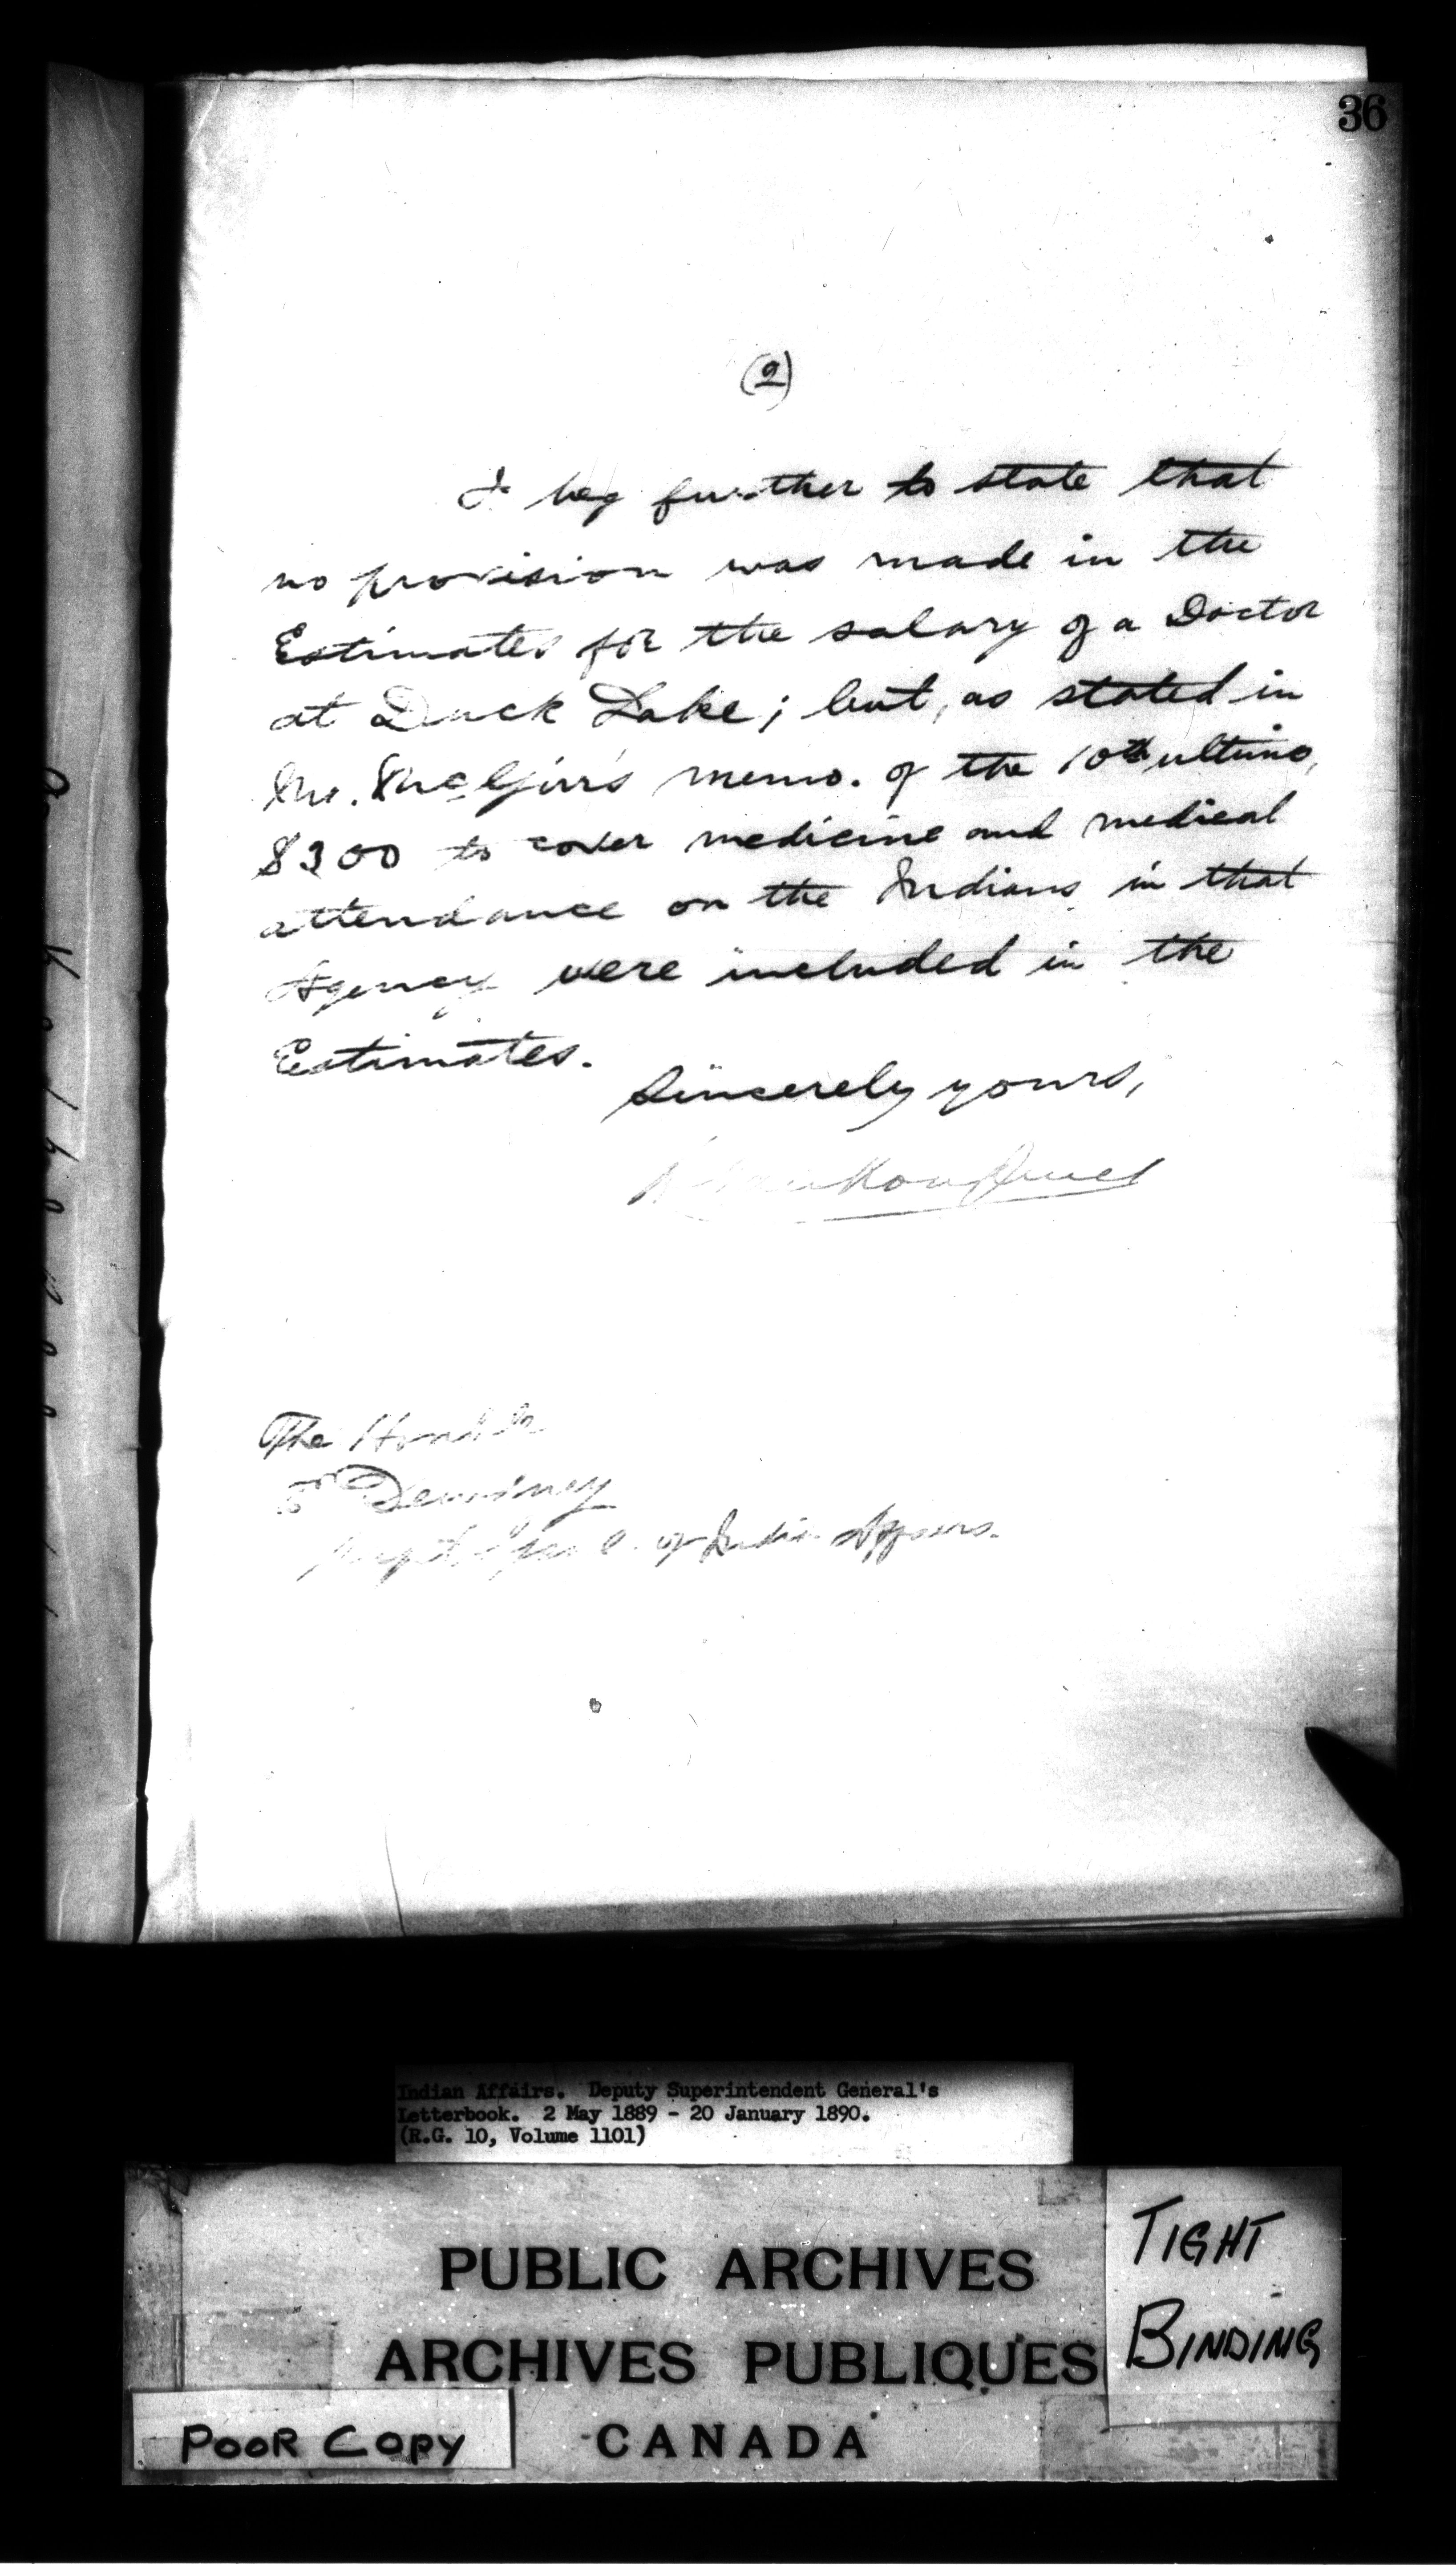 36
(2)
I beg further to state that
no provision was made in the
Estimates for the salary of a Doctor
at Duck Lake; but, as stated in
Mr. McGirr's memo. of the 10th ultimo,
$300 to cover medicine and medical
attendance on the Indians in that
Agency were included in the
Estimates.
Sincerely yours,
L. Vankoughnet
The Honble
E. Dewdney
Supt. Genl. of Indian Affairs.
Indian Affairs. Deputy Superintendent General's
Letterbook. 2 May 1889 - 20 January 1890.
(R.G. 10, Volume 1101)
PUBLIC ARCHIVES
ARCHIVES PUBLIQUES
CANADA
TIGHT
BINDING
POOR COPY